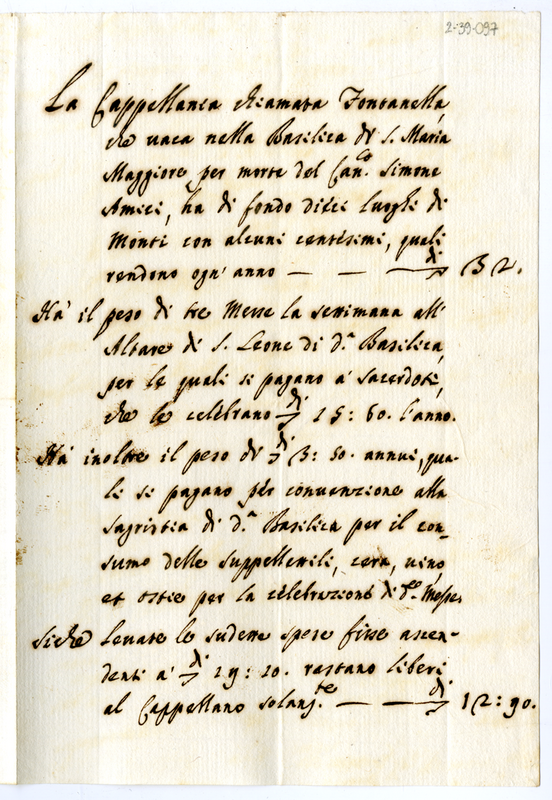 2-39-097
La Cappellania chiamata Fontanella,
che vaca nella Basilica di S. Maria
Maggiore per morte del Can.co Simone
Amici, ha di fondo dieci luoghi di
Monti con alcuni centesimi, quali
rendono ogn' anno — — di 32.
Ha' il peso di tre Messe la settimana all'
Altare di S. Leone di d.a Basilica,
per le quali si pagano a' sacerdoti,
che le celebrano di 15: 60. l'anno.
Ha' inoltre il peso di di 3: 50. annui, qua-
li si pagano per convenzione alla
sagristia di d.a Basilica per il con-
sumo delle suppellettili, cera, vino,
et ostie per la celebrazione di d.e Messe.
Siche levate le sudette spese fisse ascen-
denti a' di 19: 10. restano liberi
al Cappellano solam.te — — di 12: 90.